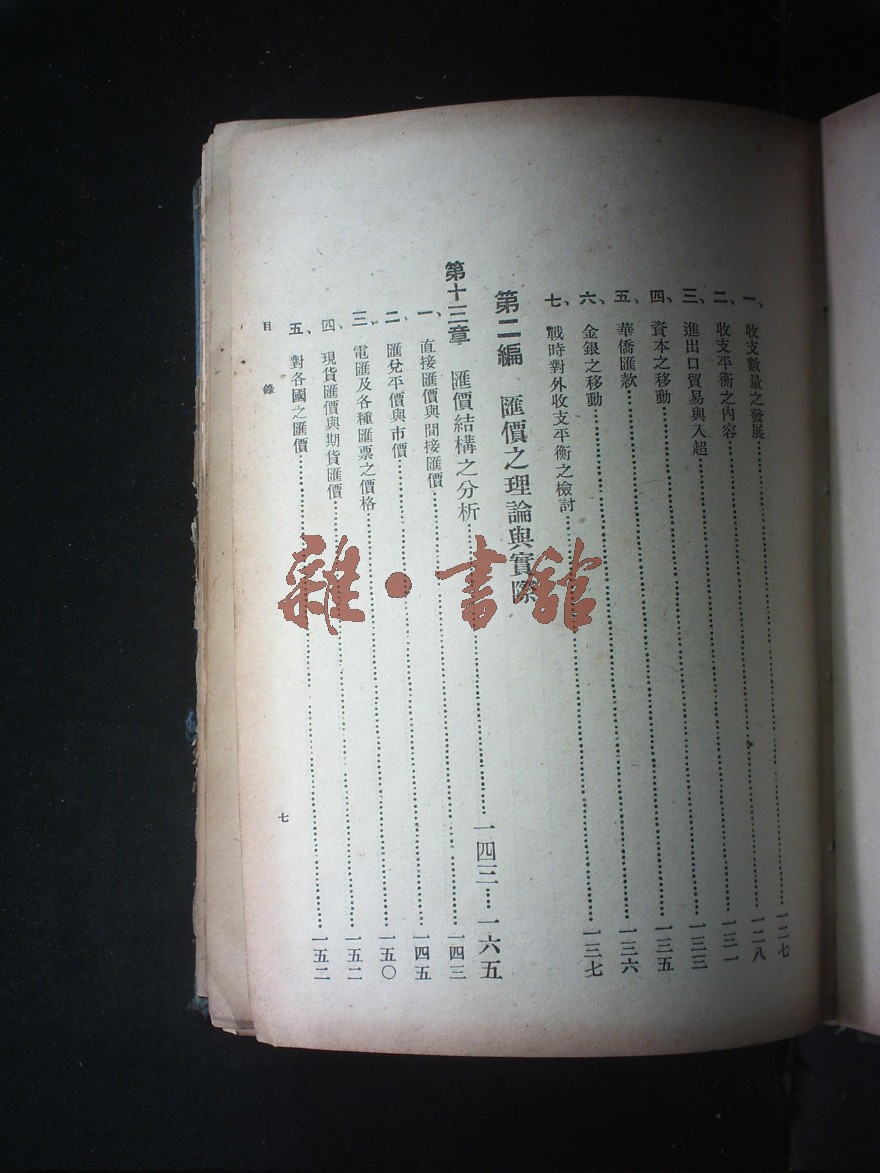 一、收支數量之發展……一二七
二、收支平衡之內容……一二八
三、進出口貿易與入超……一三一
四、資本之移動……一三三
五、華僑匯款……一三五
六、金銀之移動……一三六
七、戰時對外收支平衡之檢討……一三七
第二編 匯價之理論與實際
第十三章 匯價結構之分析……一四三……一六五
一、直接匯價與間接匯價……一四三
二、匯兌平價與市價……一四五
三、電匯及各種匯票之價格……一五〇
四、現貨匯價與期貨匯價……一五二
五、對各國之匯價……一五二
目錄 七
雜·書館